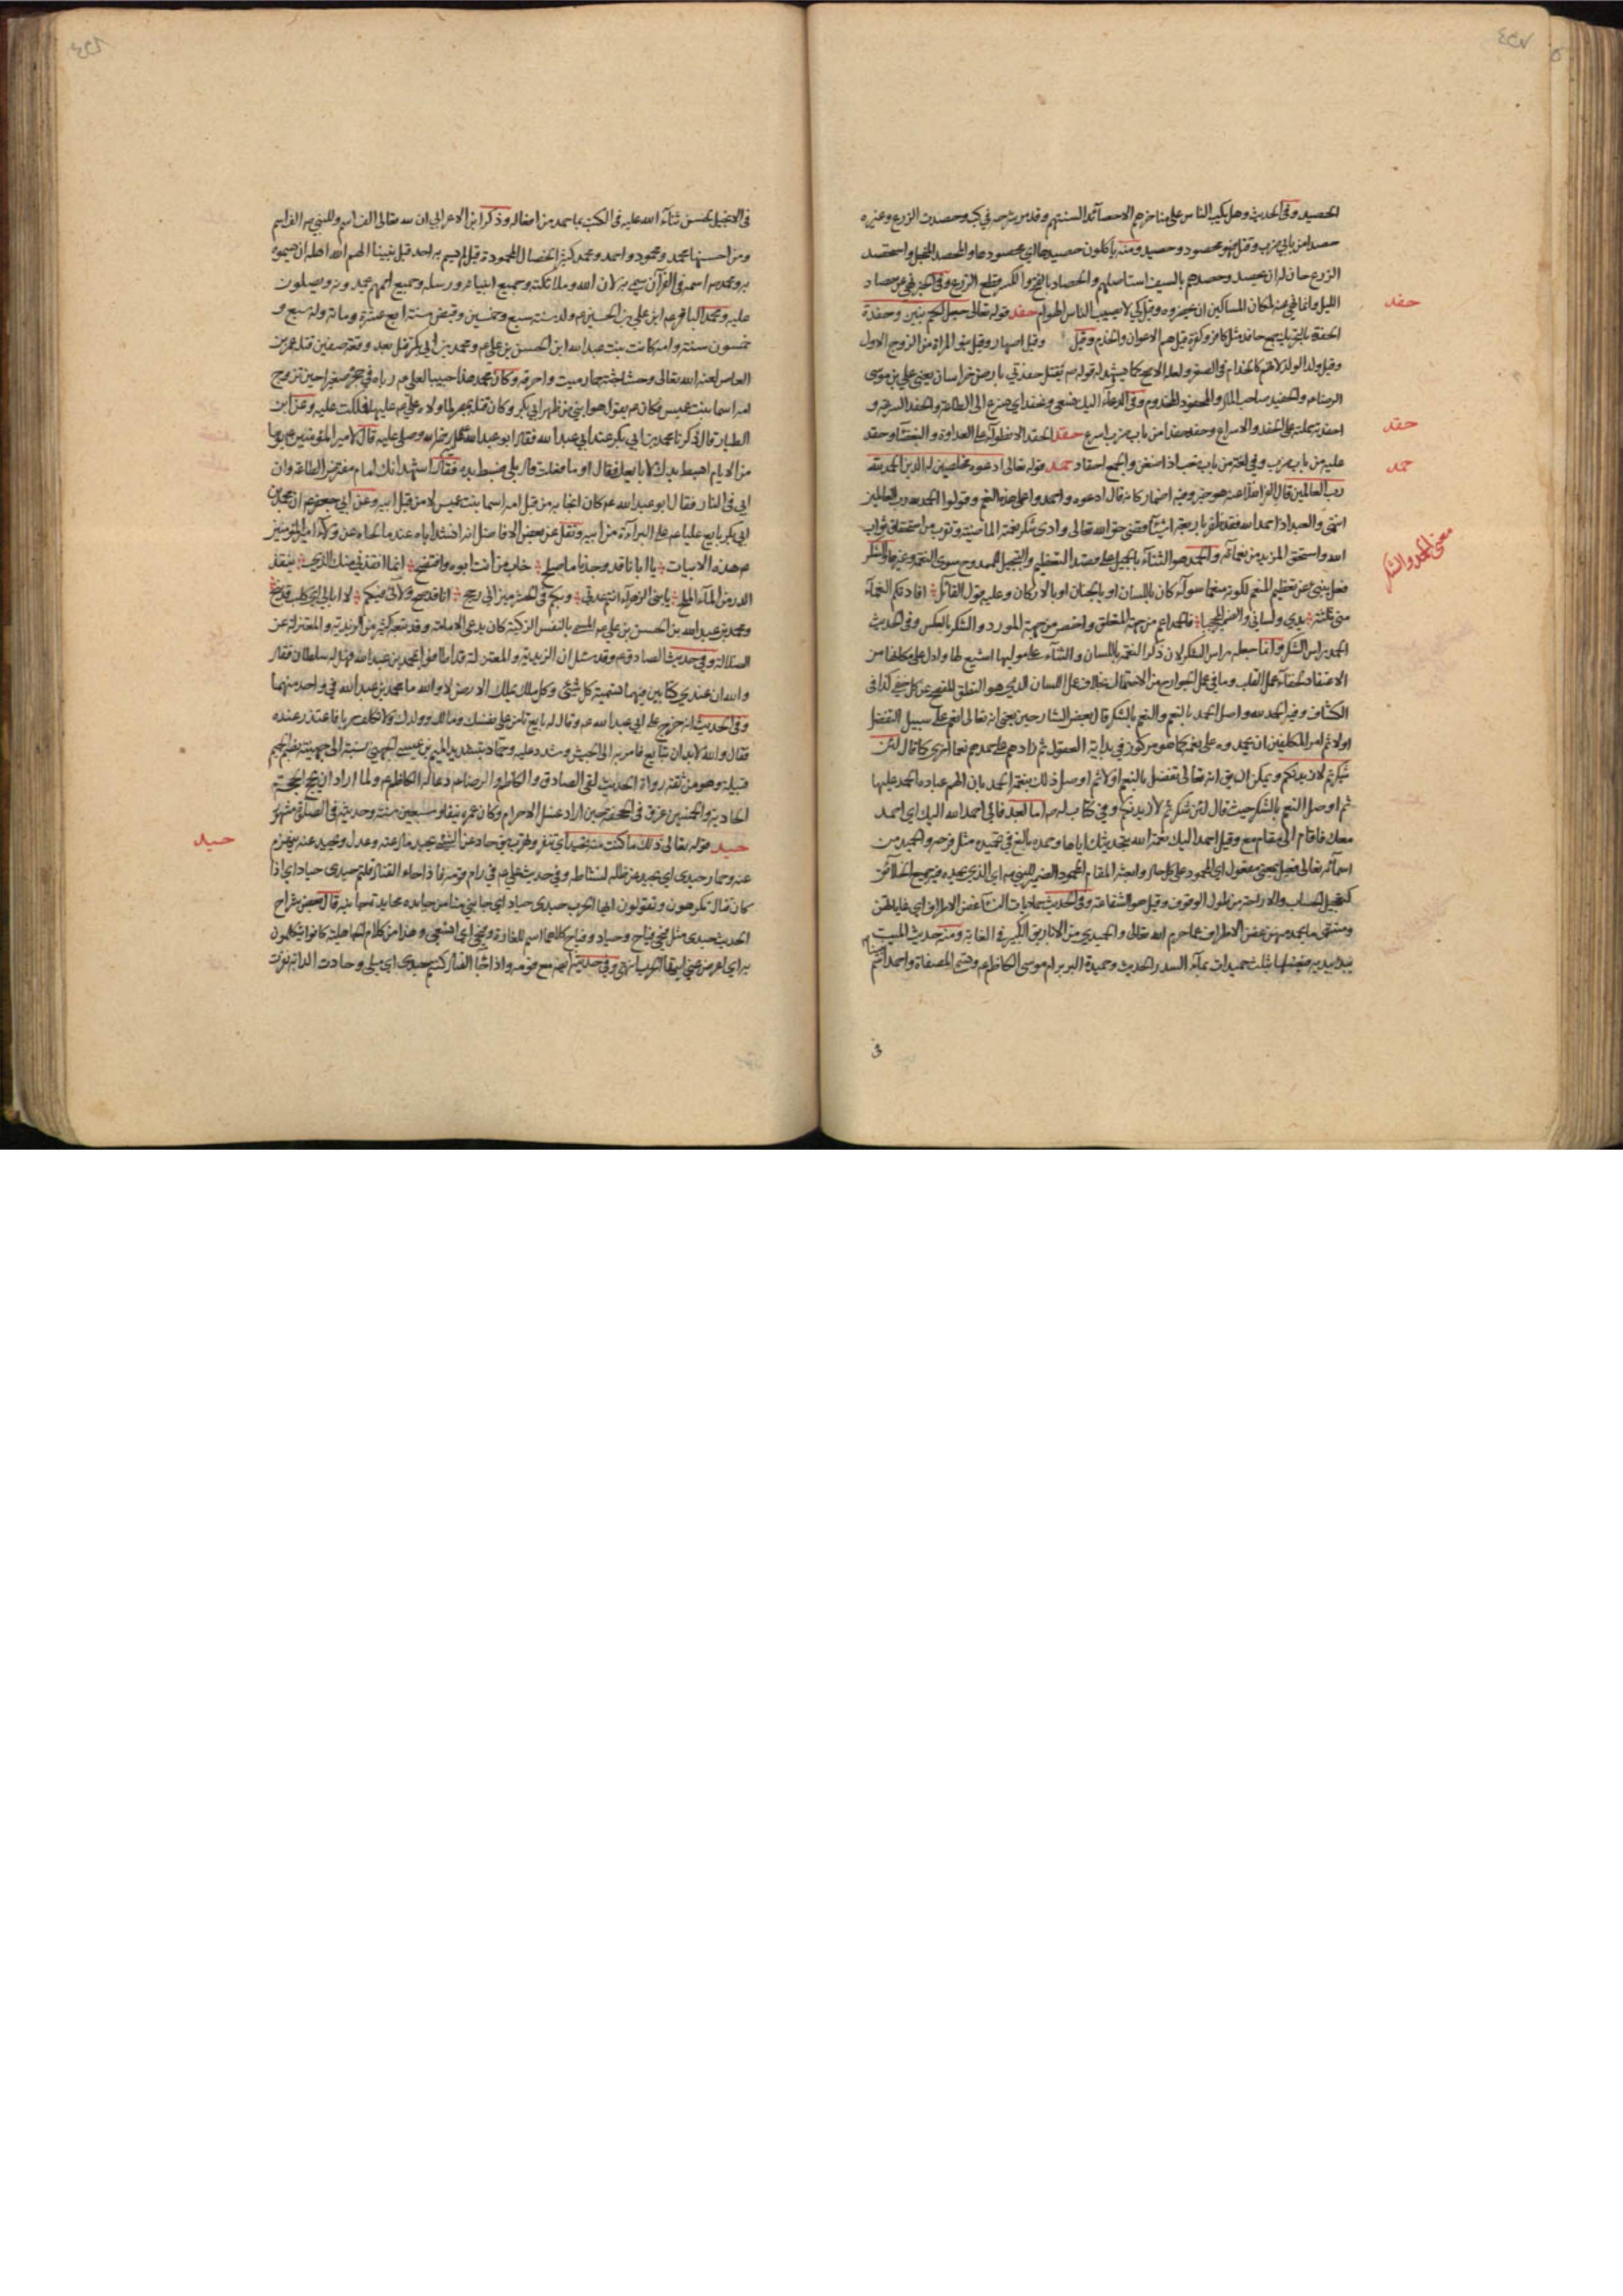 الحصيد وفي الحديث وهل يكب الناس على مناخرهم الا حصائد السنتهم وقد مر شرحه في كب وحصدت الزرع وغيره
حصدا من بابي ضرب وقتل فهو محصود وحصيد ومنه يأكلون حصيدها اي محصودها والمحصد المنجل واستحصد
الزرع حان له ان يحصد وحصدهم بالسيف استاصلهم والحصاد بالفتح والكسر قطع الزرع وفي الخبر نهى عن حصاد
الليل وانما نهى عنه لمكان المساكين ان يحضروه وقيل لكي لا يصيب الناس الهوام حفد قوله تعالى جعل لكم بنين وحفدة
الحفدة بالتحريك جمع حافد مثل كافر وكفرة قيل هم الاعوان والخدم وقيل وقيل اصهار وقيل بنو المراة من الزوج الاول
وقيل ولد الولد لانهم كالخدام في الصغر ولعله الاصح كما يشهد له قوله ص يقتل حفدتي بارض خراسان يعني علي بن موسى
الرضا ع والحفيد صاحب المال والمحفود المخدوم وفي الدعاء اليك نسعى ونحفد اي نسرع الى الطاعة والحفد السرعة و
احفدته حملته على الحفد والاسراع وحفد حفدا من باب ضرب اسرع حقد الحقد الانطواء على العداوة والبغضاء وحقد
عليه من باب ضرب وفي لغة من باب تعب اذا ضغن والجمع احقاد حمد قوله تعالى ادعوه مخلصين له الدين الحمد لله
رب العالمين قال الفراء هو خبر وفيه اضمار كانه قال ادعوه واحمدوا على هذه النعم وقولوا الحمد لله رب العالمين
انتهى والعبد اذا حمد الله فقد ظفر باربعة اشياء قضى حق الله تعالى وادى شكر نعمة الماضية وتقرب من استحقاق ثواب
الله واستحق المزيد من نعمائه والحمد هو الثناء بالجميل على قصد التعظيم والتبجيل للممدوح سوى النعمة وغيرها والشكر
فعل ينبئ عن تعظيم المنعم لكونه منعما سواء كان باللسان او بالجنان او بالاركان وعليه قول القائل افادتكم النعماء
مني ثلثة يدي ولساني والضمير المحجبا فالحمد اعم من جهة المتعلق واخص من جهة المورد والشكر بالعكس وفي الحديث
الحمد راس الشكر وانما جعله راس الشكر لان ذكر النعمة باللسان والثناء على موليها اشيع لها وادل على مكانها من
الاعتقاد لخفاء عمل القلب وما في عمل الجوارح من الاحتمال بخلاف عمل اللسان الذي هو النطق المفصح عن كل خفي كذا في
الكشاف وفيه الحمد لله واصل الحمد بالنعم والنعم بالشكر قال بعض الشارحين يعني انه تعالى انعم على سبيل التفضل
اولا ثم امر المكلفين ان يحمدوه على نعمه كما هو مركوز في بداية العقول ثم زادهم على حمدهم نعما اخرى كما قال لئن
شكرتم لازيدنكم ويمكن ان يق انه تعالى تفضل بالنعم اولا ثم اوصل ذلك بنعمة الحمد بان الهم عباده الحمد عليها
ثم اوصل النعم بالشكر حيث قال لئن شكرتم لازيدنكم وفي كتاب له ص اما بعد فاني احمد الله اليك اي احمد
معك فاقام الى مقام مع وقيل احمد اليك نعمة الله بتحديثك اياها وحمده بالفتح في تحميده مثل فرحه والحميد من
اسمائه تعالى فعيل بمعنى مفعول اي المحمود على كل حال وابعثه المقام المحمود الضمير للنبي ص اي الذي يحمده فيه جميع الخلائق
كتعجيل الحساب والاراحة من طول الوقوف وقيل هو الشفاعة وفي الحديث حماديات النساء غض الاطراف اي غاياتهن
ومنتهى ما يحمد منهن غض الاطراف عما حرم الله تعالى
يبدء بيديه فيغسلها بثلث حميديات بماء السدر الحديث وحميدة البربرية ام موسى الكاظم ع وهي المصفاة واحمد اسم
في
حفد
حقد
حمد
معنى الحمد والشكر
في الانجيل لحسن ثناء الله عليه في الكتب بما حمد من افعاله وذكر ابن الاعرابي ان لله تعالى الف اسم وللنبي ص الف اسم
ومن احسنها محمد ومحمود واحمد ومحمد كثير الخصال المحمودة قيل لم يسم به احد قبل نبينا الهم الله اهله ان يسموه
به ومحمد ص اسمه في القرآن سمي به لان الله وملائكته وجميع انبيائه ورسله وجميع اممهم يحمدونه ويصلون
عليه ومحمد الباقر ع ابن علي بن الحسين ع ولد سنة سبع وخمسين وقبض سنة اربع عشرة ومائة وله سبع و
خمسون سنة وامه كانت بنت عبد الله ابن الحسن بن علي ع ومحمد بن ابي بكر قتل بعد وقعة صفين قتله عمرو بن
العاص لعنه الله تعالى وحشا جثته حمار ميت واحرقه وكان محمد هذا حبيبا لعلي ع رباه في حجره صغيرا حين تزوج
امه اسما بنت عميس فكان ع يقول هو ابني من ظهر ابي بكر وكان قتله بمصر لما ولاه علي ع عليها فملكت عليه وعن ابن
الطيار قال ذكرنا محمد بن ابي بكر عند ابي عبد الله فقال ابو عبد الله ع رحمه الله وصلى عليه قال لامير المؤمنين ع يوما
من الايام ابسط يدك ابايعك فقال او ما فعلت قال بلى فبسط يده فقال اشهد انك امام مفترض الطاعة وان
ابي في النار فقال ابو عبد الله ع كان انجابه من قبل امه اسما بنت عميس لا من قبل ابيه وعن ابي جعفر ع ان محمد بن
ابي بكر بايع عليا ع على البراءة من ابيه ونقل عن بعض الافاضل انه انشد اباه عند ما لحاه عن ولاء امير المؤمنين
ع هذه الابيات يا ابانا قد وجدنا ما صلح خاب من انت ابوه وافتضح انما انقذني منك الذي ينقذ
الدر من الماء الملح يا بني الزهراء انتم عدتي وبكم في الحشر ميزاني رجح انا قد صح ولائي فيكم لا ابالي اي كلب قد نبح
ومحمد بن عبد الله بن الحسن بن علي ع المسمى بالنفس الزكية كان يدعي الامامة وقد تبعه كثير من الزيدية والمعتزلة عن
الضلالة وفي حديث الصادق ع وقد سئل ان الزيدية والمعتزلة قد اطافوا بمحمد بن عبد الله فهل له سلطان فقال
والله ان عندي كتابين فيهما تسمية كل نبي وكل ملك يملك الارض لا والله ما محمد بن عبد الله في واحد منهما
وفي الحديث انه خرج على ابي عبد الله ع وقال له بايع تامن على نفسك ومالك وولدك ولا تكلف حربا فاعتذر عنده
فقال والله لا بد ان تبايع فامر به الى الحبس وشدد عليه وحماد بتشديد الميم بن عيسى الجهني نسبة الى جهينة بضم الجيم
قبيلة وهو من ثقة رواة الحديث لقي الصادق والكاظم والرضا ع دعا له الكاظم ع ولما اراد ان يحج الحجة
الحادية والخمسين غرق في الجحفة حين اراد غسل الاحرام وكان عمره نيفا وسبعين سنة وحديثه في الصلوة مشهور
حيد قوله تعالى ذلك ما كنت منه تحيد اي تنفر وتهرب يق حاد عن الشيء يحيد مال عنه وعدل وتحيد عنه تعرض
عنه وحمار حيدى اي يحيد عن ظله لنشاطه وفي حديث علي ع في ذم قومه فاذا جاء القتال قلتم حيدى حياد اي اذا
كان قتال تكرهون وتقولون ايها الحرب حيدى حياد اي جانبي منا من حايده محايدة جانبه قال بعض شراح
الحديث حيدى مثل فيحي فياح وحياد وفياح كلاهما اسم للغارة وفيحي اي اتسعي وهذا من كلام الجاهلية كانوا يتكلمون
به اي اعرضي عني ايها الحرب انتهى وفي حديثه ايضا مع قومه واذا جاء القتال كنتم حيدى اي ميلى وحادت الدابة نفرت
حيد